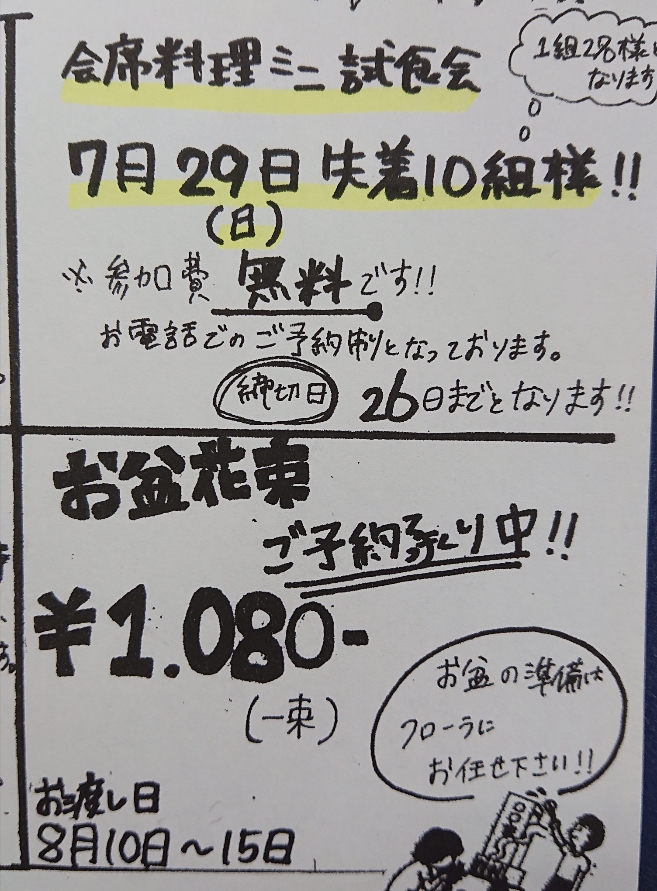 会席料理ミニ試食会
1組2名様
なります
7月29日 先着10組様!!
(日)
※参加費 無料です!!
お電話でのご予約制となっております。
締切日 26日までとなります!!
お盆花束
ご予約承り中!!
¥1.080-
(一束)
お盆の準備は
フローラに
お任せ下さい!!
お渡し日
8月10日〜15日